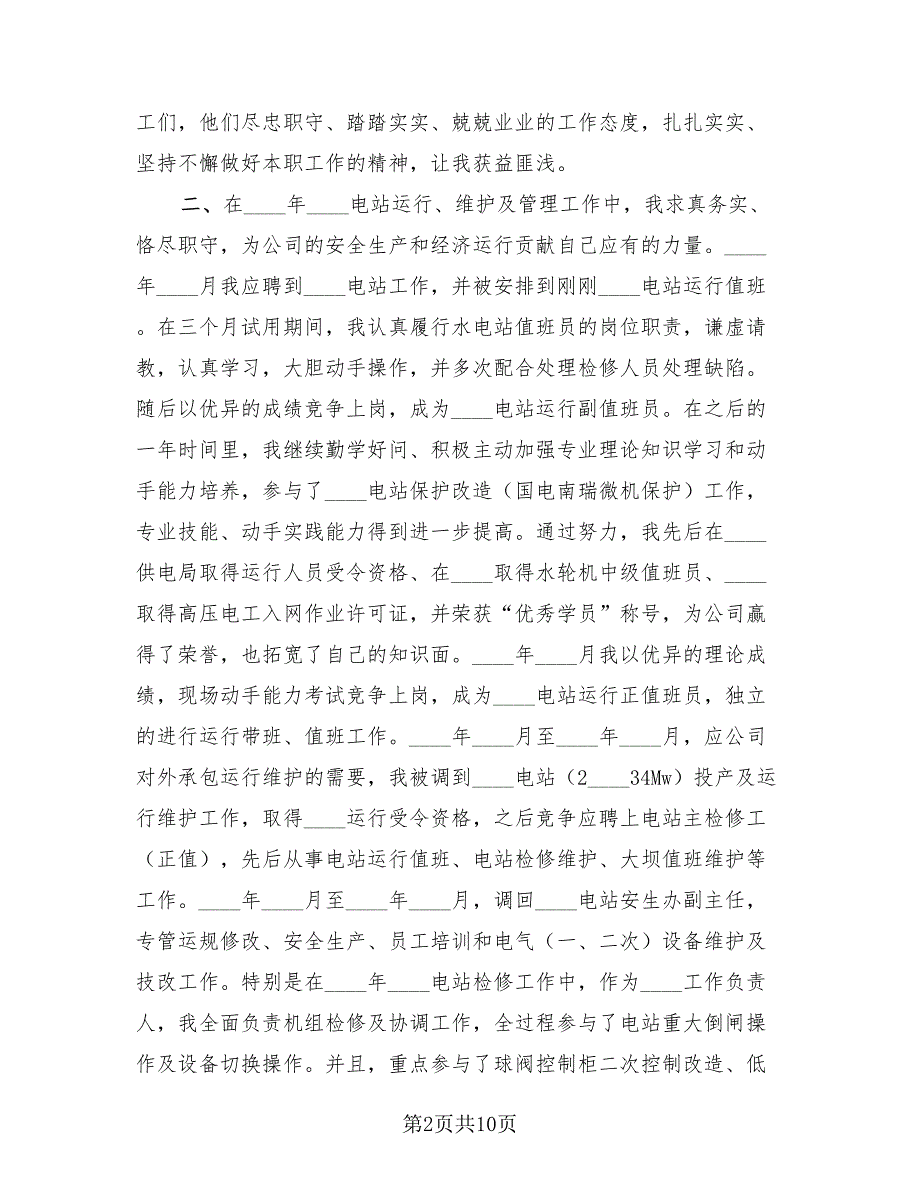 工们，他们尽忠职守、踏踏实实、兢兢业业的工作态度，扎扎实实、
坚持不懈做好本职工作的精神，让我获益匪浅。
二、在____年____电站运行、维护及管理工作中，我求真务实、
恪尽职守，为公司的安全生产和经济运行贡献自己应有的力量。____
年____月我应聘到____电站工作，并被安排到刚刚____电站运行值班
。在三个月试用期间，我认真履行水电站值班员的岗位职责，谦虚请
教，认真学习，大胆动手操作，并多次配合处理检修人员处理缺陷。
随后以优异的成绩竞争上岗，成为____电站运行副值班员。在之后的
一年时间里，我继续勤学好问、积极主动加强专业理论知识学习和动
手能力培养，参与了____电站保护改造（国电南瑞微机保护）工作，
专业技能、动手实践能力得到进一步提高。通过努力，我先后在____
供电局取得运行人员受令资格、在____取得水轮机中级值班员、____
取得高压电工入网作业许可证，并荣获“优秀学员”称号，为公司赢
得了荣誉，也拓宽了自己的知识面。____年____月我以优异的理论成
绩，现场动手能力考试竞争上岗，成为____电站运行正值班员，独立
的进行运行带班、值班工作。____年____月至____年____月，应公司
对外承包运行维护的需要，我被调到____电站（2____34Mw）投产及运
行维护工作，取得____运行受令资格，之后竞争应聘上电站主检修工
（正值），先后从事电站运行值班、电站检修维护、大坝值班维护等
工作。____年____月至____年____月，调回____电站安生办副主任，
专管运规修改、安全生产、员工培训和电气（一、二次）设备维护及
技改工作。特别是在____年____电站检修工作中，作为____工作负责
人，我全面负责机组检修及协调工作，全过程参与了电站重大倒闸操
作及设备切换操作。并且，重点参与了球阀控制柜二次控制改造、低
第2页共10页